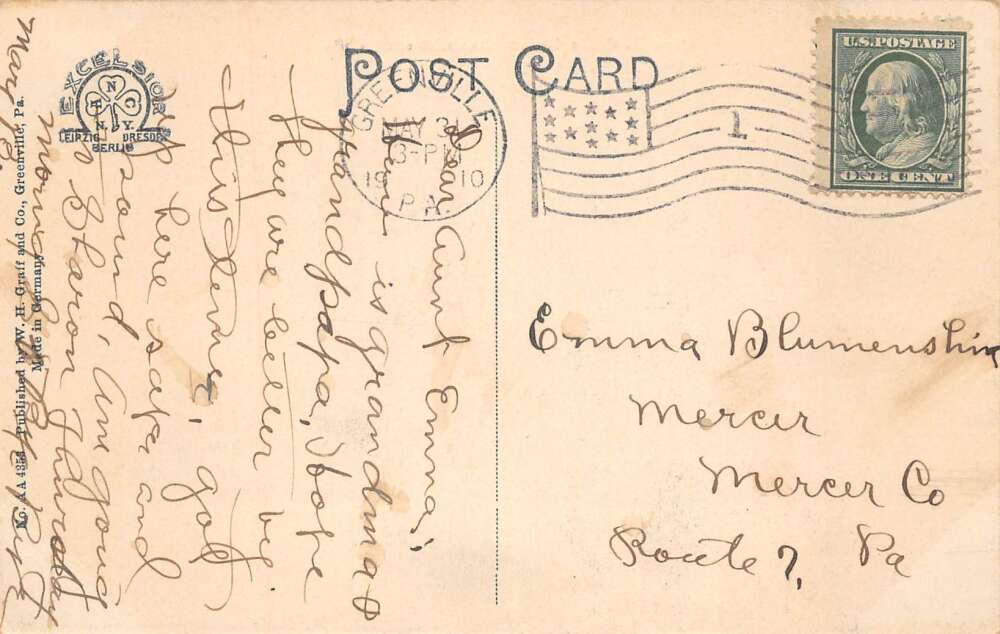 POST CARD
EXCELSIOR
A N C
N.Y.
LEIPZIG DRESDEN
BERLIN
GREENVILLE
MAY 31
3-PM
1910
PA.
1
U.S. POSTAGE
ONE CENT
Dear Aunt Emma,
How is grandma &
grandpapa, I hope
they are better by
this time, got
here safe and
sound, am going
to Sharon Thursday
morning
Mary
Emma Blumenshin
Mercer
Mercer Co
Route 7, Pa
No. AA 4354 Published by W. H. Graff and Co., Greenville, Pa.
Made in Germany